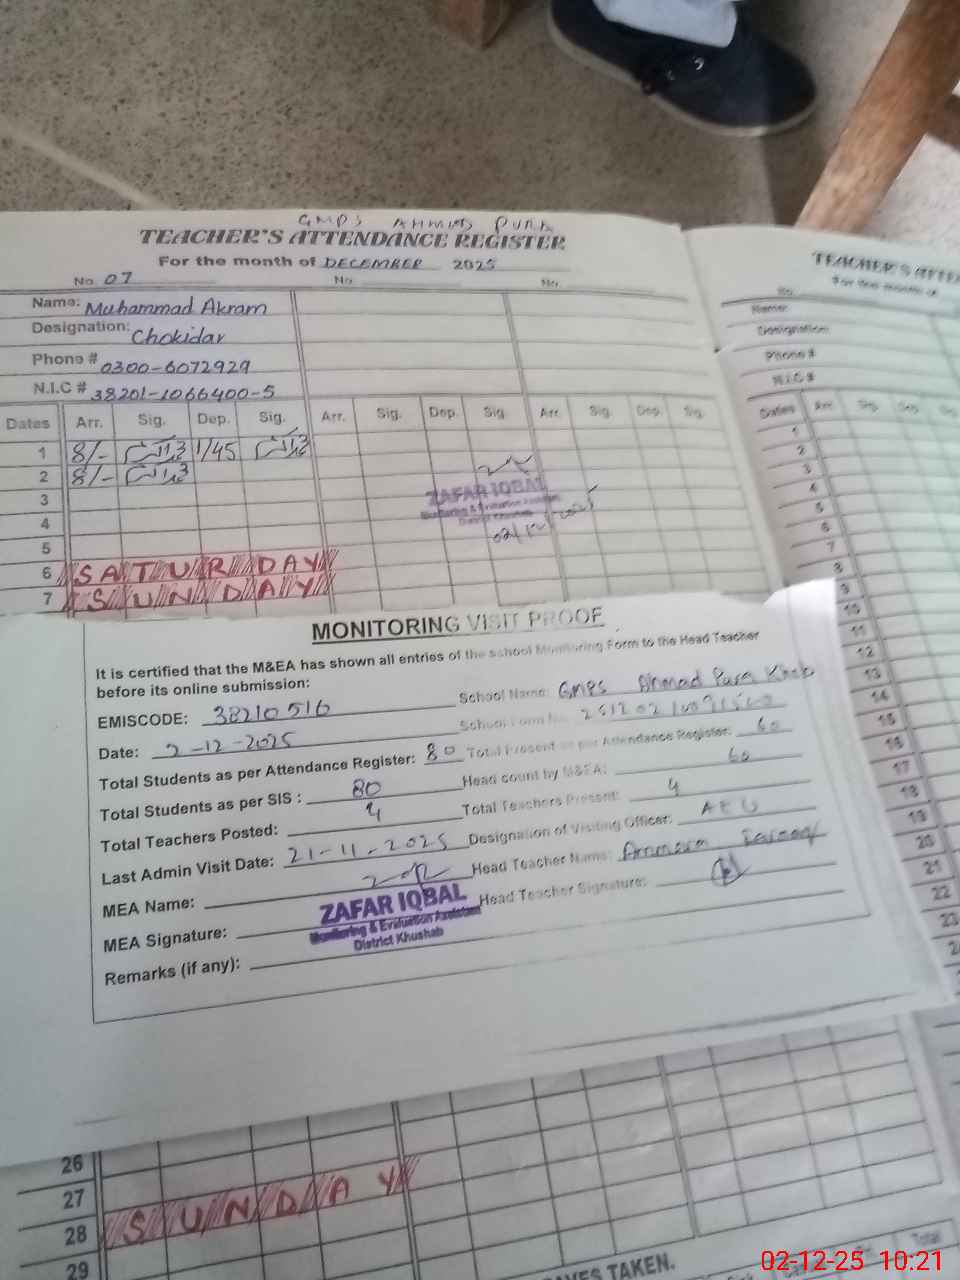 GMPS AHMED PURA
TEACHER'S ATTENDANCE REGISTER
For the month of DECEMBER 2025
No. 07 No. No.
Name: Muhammad Akram
Designation: Chokidar
Phone # 0300-6072929
N.I.C # 38201-1066400-5
Dates Arr. Sig. Dep. Sig. Arr. Sig. Dep. Sig. Arr. Sig. Dep. Sig.
1 8/- 1/45
2 8/-
3
4
5
6 SATURDAY
7 SUNDAY
ZAFAR IQBAL
Monitoring & Evaluation Assistant
District Khushab
02/12/2025
MONITORING VISIT PROOF
It is certified that the M&EA has shown all entries of the school Monitoring Form to the Head Teacher
before its online submission:
EMISCODE: 38210516 School Name: GMPS Ahmad Pura
Date: 2-12-2025 School Form No.
Total Students as per Attendance Register: 80 Total Present as per Attendance Register: 60
Total Students as per SIS : 80 Head count by M&EA: 60
Total Teachers Posted: 4 Total Teachers Present: 4
Last Admin Visit Date: 21-11-2025 Designation of Visiting Officer: AEO
MEA Name: Head Teacher Name:
MEA Signature: Head Teacher Signature:
ZAFAR IQBAL
Monitoring & Evaluation Assistant
District Khushab
Remarks (if any):
26
27
28 SUNDAY
29
TAKEN.
Total
TEACHER'S
For the month of
No.
Name:
Designation:
Phone #
N.I.C #
Dates Arr. Sig. Dep. Sig.
1
2
3
4
5
6
7
8
9
10
11
12
13
14
15
16
17
18
19
20
21
22
23
02-12-25 10:21